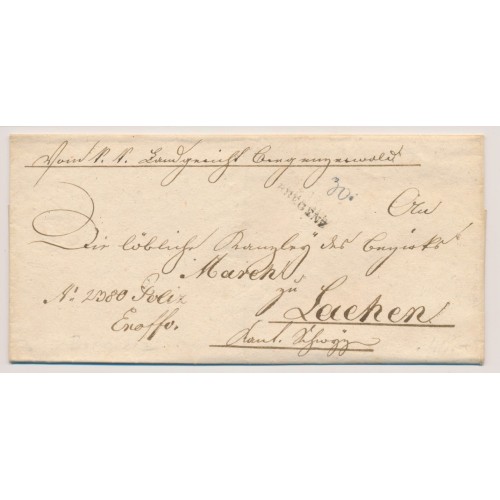 Vom k. k. Landgericht Bregenzerwald
30.
BREGENZ
An
Die löbliche Kanzley des Bezirks
March
zu
No. 2380 Poliz
Lachen
Exoffo.
Kant. Schwÿz